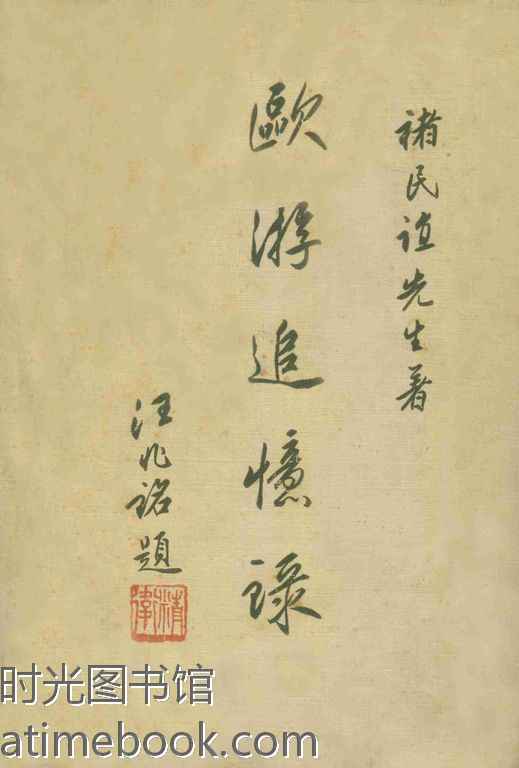 褚民誼先生著
歐游追憶錄
汪兆銘題
精衛
时光图书馆
atimebook.com